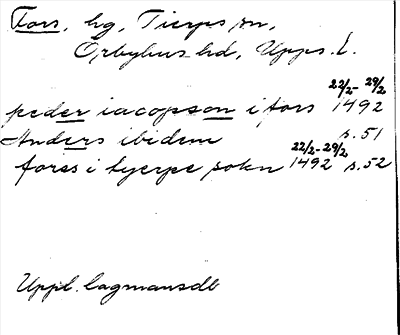 Fors, hg, Tierps sn,
Örbyhus hd, Upps. l.
22/2 - 29/2
peder iacopson i fors 1492
Anders ibidem s. 51
22/2 - 29/2
forss i tyerpe sokn 1492 s. 52
Uppl. lagmansdb